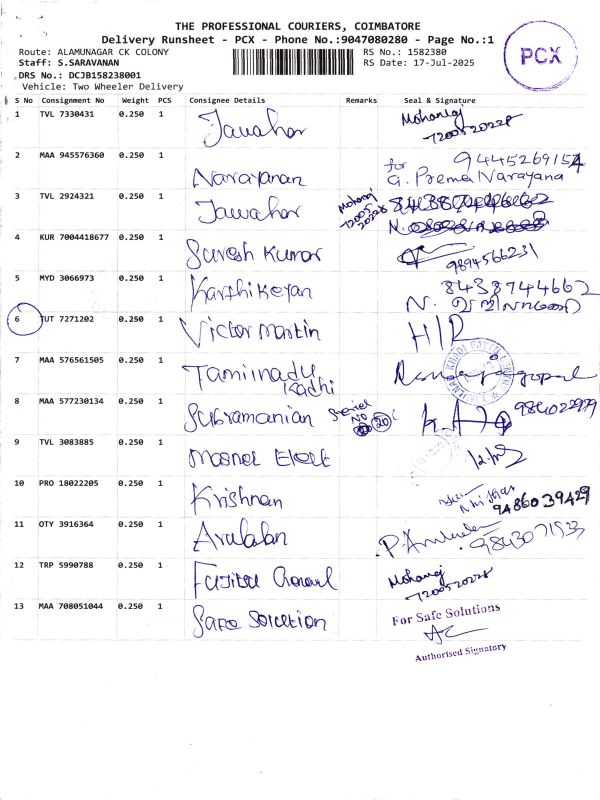 THE PROFESSIONAL COURIERS, COIMBATORE
Delivery Runsheet - PCX - Phone No.:9047080280 - Page No.:1
Route: ALAMUNAGAR CK COLONY
RS No.: 1582380
Staff: S.SARAVANAN
RS Date: 17-Jul-2025
PCX
DRS No.: DCJB158238001
Vehicle: Two Wheeler Delivery
S No Consignment No Weight PCS Consignee Details Remarks Seal & Signature
1 TVL 7330431 0.250 1 Jawahar Mohanraj 7200520228
2 MAA 945576360 0.250 1 Narayanan for 9445269154
G. Prema Narayana
3 TVL 2924321 0.250 1 Jawahar Mohanraj 7200520228
4 KUR 7004418677 0.250 1 Suresh Kumar 9894566231
5 MYD 3066973 0.250 1 Karthikeyan 8438744662
N.
6 TUT 7271202 0.250 1 Victor Martin H/R
7 MAA 576561505 0.250 1 Tamilnadu Kadhi
8 MAA 577230134 0.250 1 Subramanian Serial No 20
9 TVL 3083885 0.250 1
10 PRO 18022205 0.250 1 Krishnan 9486039429
11 OTY 3916364 0.250 1 Arulalan 9843071533
12 TRP 5990788 0.250 1 Mohanraj 7200520228
13 MAA 708051044 0.250 1 Safe Solution For Safe Solutions
Authorised Signatory